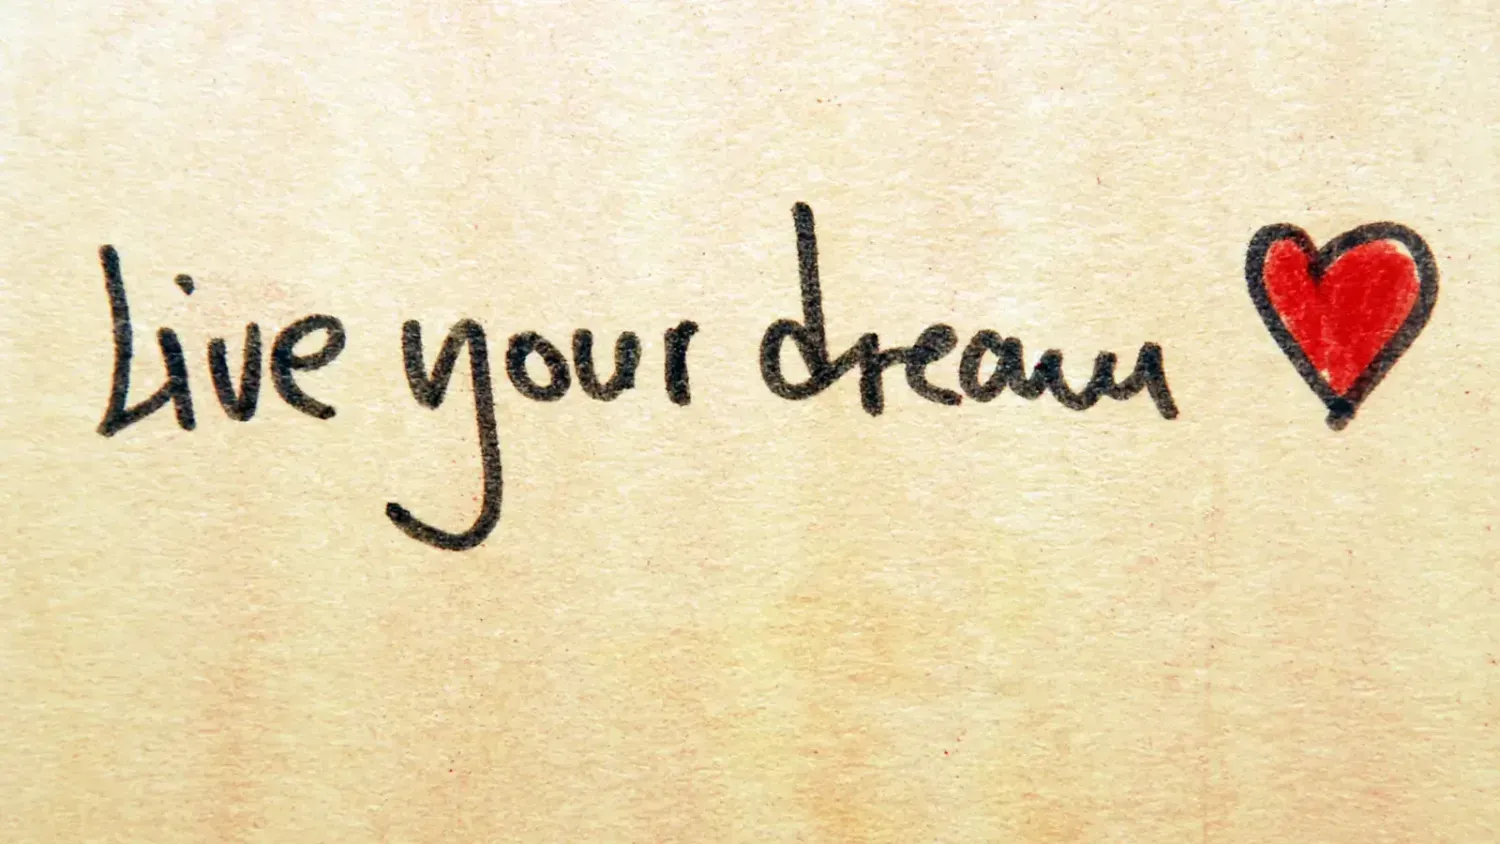 Live your dream